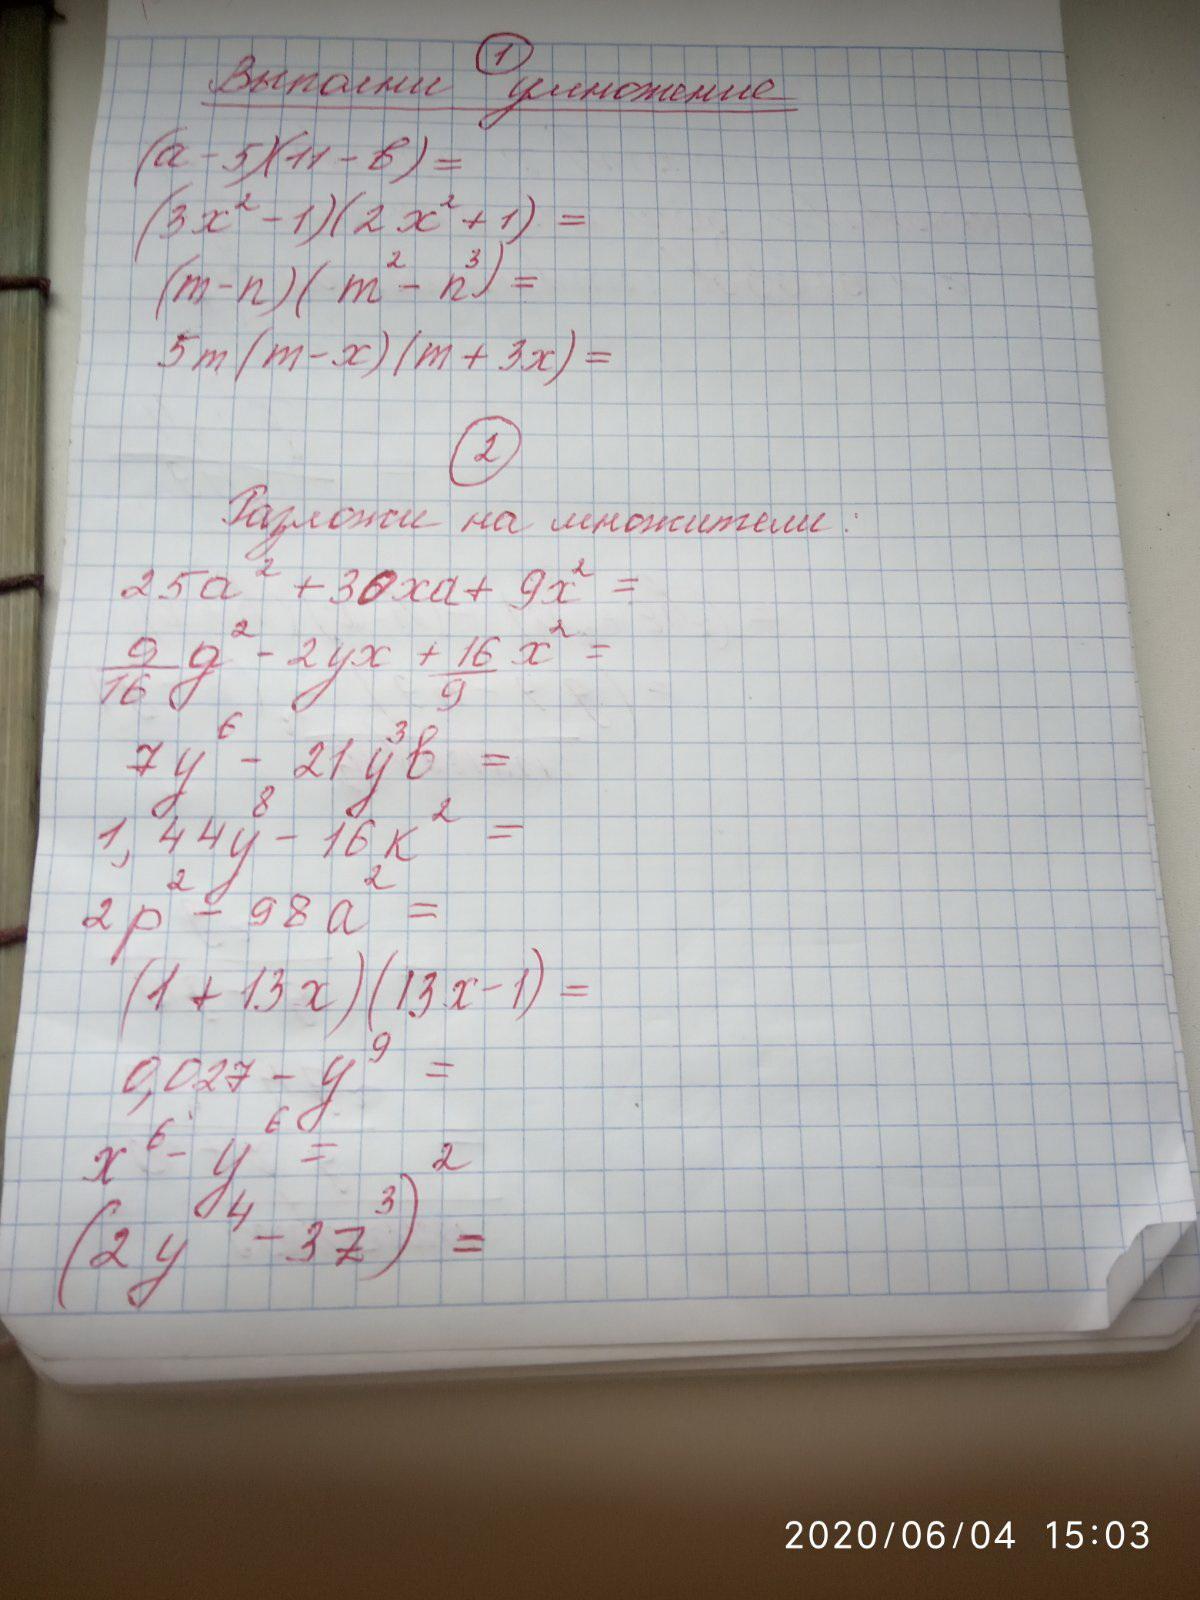 1
Выполни умножение
(a - 5)(11 - b) =
(3x² - 1)(2x² + 1) =
(m - n)(m² - n³) =
5m(m - x)(m + 3x) =
2
Разложи на множители:
25a² + 30xa + 9x² =
9/16 y² - 2yx + 16/9 x² =
7y⁶ - 21y³b =
1,44y⁸ - 16k² =
2p² - 98a² =
(1 + 13x)(13x - 1) =
0,027 - y⁹ =
x⁶ - y⁶ =
(2y⁴ - 3z³)² =
2020/06/04 15:03